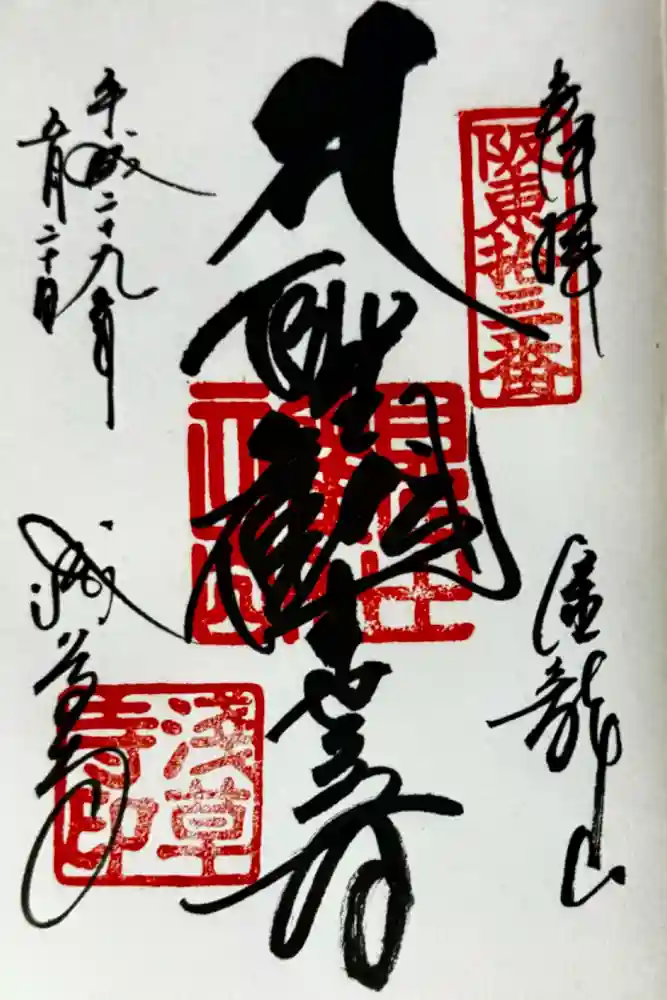 奉拝
阪東拾三番
金龍山
聖観世音
平成二十九年
五月二十日
浅草寺
浅草
寺印